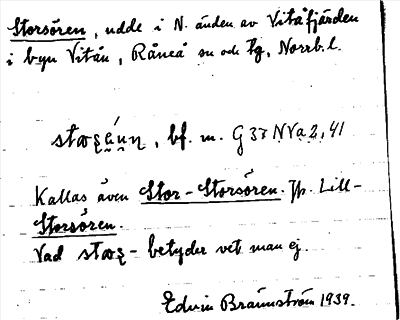 Storsören, udde i N. änden av Vitåfjärden
i byn Vitån, Råneå sn och tg, Norrb. l.
bf. m. G 37 NVa 2, 41
Kallas även Stor-Storsören. Jfr. Lill-
Storsören.
Vad - betyder vet man ej.
Edvin Brännström 1939.